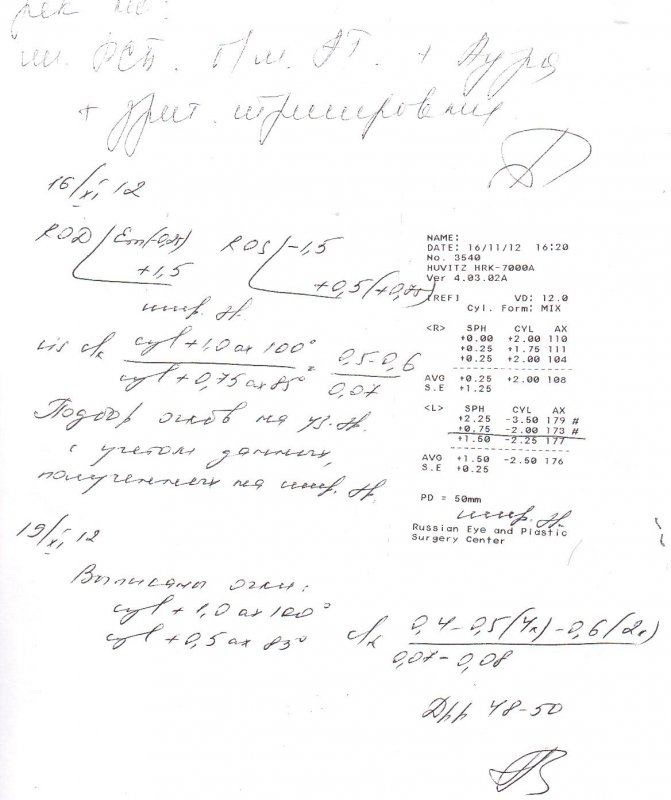 рек-но:
РСП. б/м. АТ. + Аура
+ тренирования
16/XI 12
ROD Em(-0,25)
+1,5
ROS -1,5
+0,5(+0,75)
шир. Н.
vis c/к cyl + 1,0 ax 100° = 0,5-0,6
cyl + 0,75 ax 85° 0,07
Подбор очков на уз. Н.
с учетом данных,
полученных на шир. Н.
NAME:
DATE: 16/11/12 16:20
No. 3540
HUVITZ HRK-7000A
Ver 4.03.02A
[REF] VD: 12.0
Cyl. Form: MIX
<R> SPH CYL AX
+0.00 +2.00 110
+0.25 +1.75 111
+0.25 +2.00 104
AVG +0.25 +2.00 108
S.E +1.25
<L> SPH CYL AX
+2.25 -3.50 179 #
+0.75 -2.00 173 #
+1.50 -2.25 177
AVG +1.50 -2.50 176
S.E +0.25
PD = 50mm
шир. Н.
Russian Eye and Plastic
Surgery Center
19/XI 12
Выписаны очки:
cyl + 1,0 ax 100°
cyl + 0,5 ax 85°
c/к 0,4-0,5(4к)-0,6(2к)
0,07-0,08
Dpp 48-50